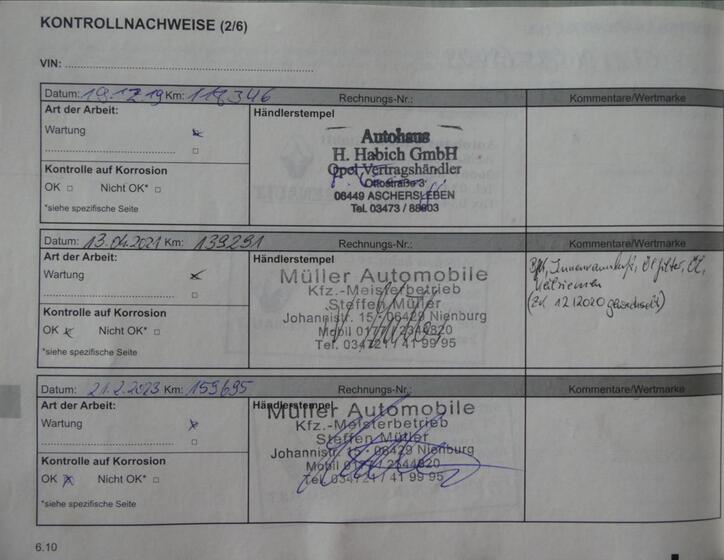 KONTROLLNACHWEISE (2/6)
VIN:
Datum: 19.12.19 Km: 118346 Rechnungs-Nr.: Kommentare/Wertmarke
Art der Arbeit: Händlerstempel
Wartung
Kontrolle auf Korrosion
OK Nicht OK*
*siehe spezifische Seite
Autohaus
H. Habich GmbH
Opel Vertragshändler
Ottostraße 3
06449 ASCHERSLEBEN
Tel. 03473 / 88803
Datum: 13.04.2021 Km: 139291 Rechnungs-Nr.: Kommentare/Wertmarke
Art der Arbeit: Händlerstempel
Wartung
Kontrolle auf Korrosion
OK Nicht OK*
*siehe spezifische Seite
Müller Automobile
Kfz.-Meisterbetrieb
Steffen Müller
Johannistr. 15 · 06429 Nienburg
Mobil 0177 / 2344820
Tel. 034721 / 41 99 95
Ölfilter, Öl,
Keilriemen
12/2020 gewechselt)
Datum: 21.2.2023 Km: 159695 Rechnungs-Nr.: Kommentare/Wertmarke
Art der Arbeit: Händlerstempel
Wartung
Kontrolle auf Korrosion
OK Nicht OK*
*siehe spezifische Seite
Müller Automobile
Kfz.-Meisterbetrieb
Steffen Müller
Johannistr. 15 · 06429 Nienburg
Mobil 0177 / 2344820
Tel. 034721 / 41 99 95
6.10